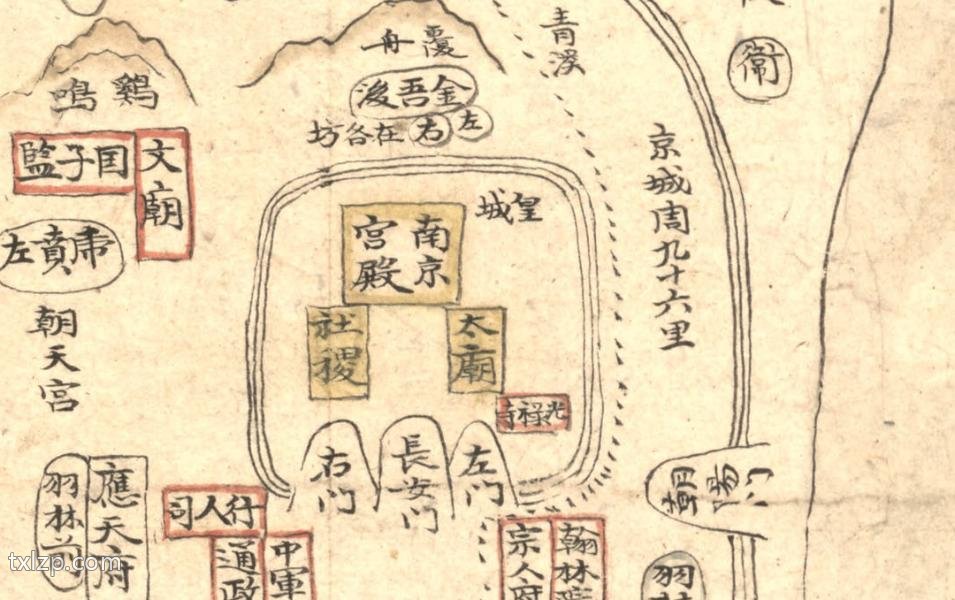 青溪
覆舟
衛
鷄鳴
金吾後
左
右
在各坊
文廟
国子監
京城周九十六里
皇城
南京宮殿
虎賁左
朝天宮
社稷
太廟
光祿寺
右门
長安门
左门
朝陽门
羽林前
應天府
行人司
通政
中軍
宗人府
翰林院
羽林
txlzp.com